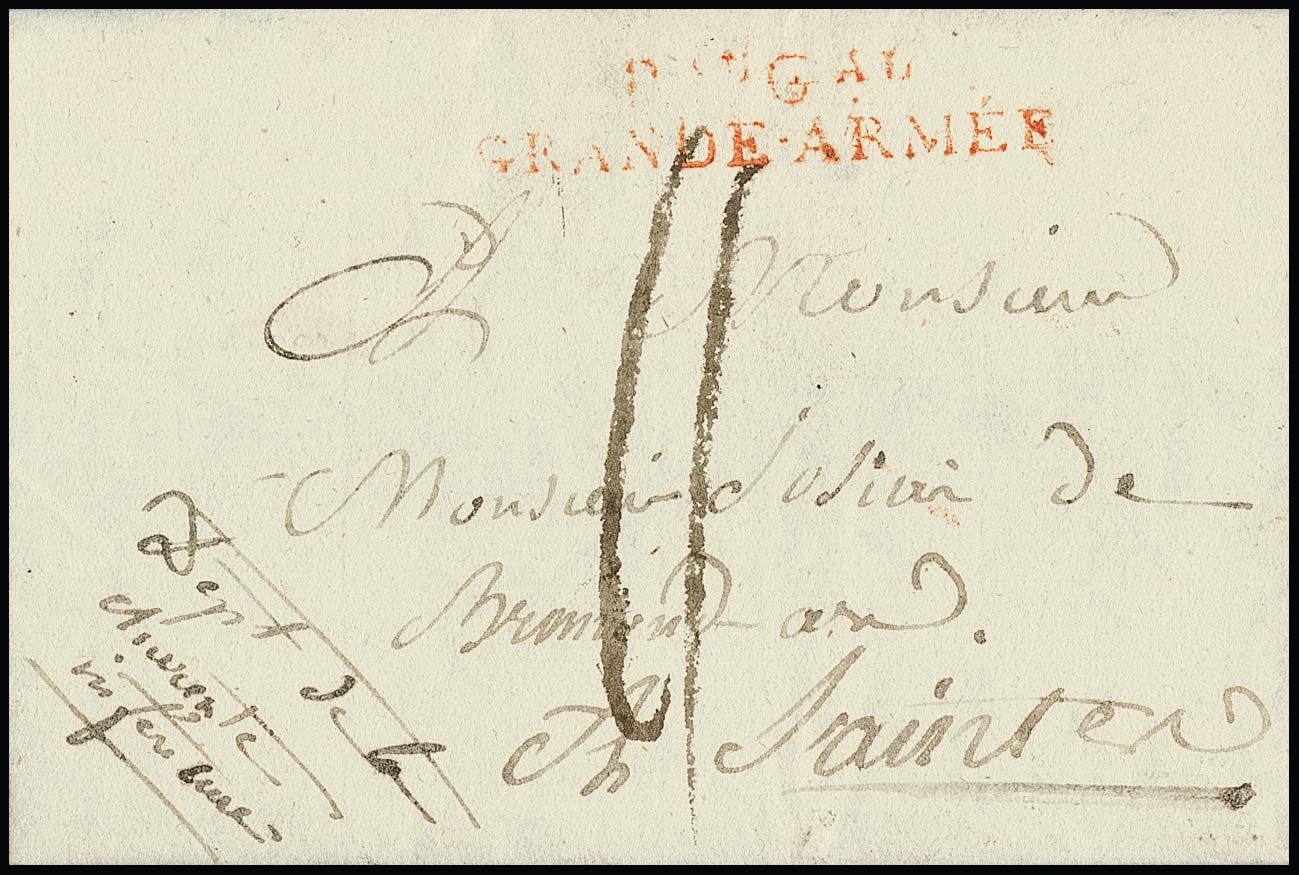 GAL
GRANDE-ARMÉE
A Monsieur
Monsieur Josieur de
Bremond
A Saintes
Dept de la
charente
inferieure